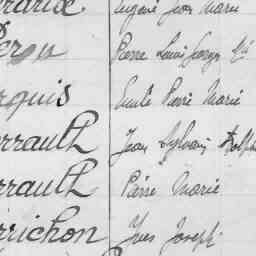 Eugène Jean Marie
Pierre Louis Georges
rquis Emile Pierre Marie
rrault Jean Sylvain Adolphe
rrault Pierre Marie
rrichon Yves Joseph